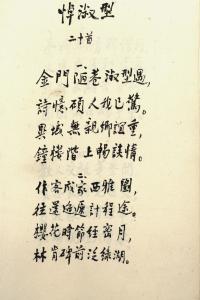 悼淑型
二十首
一、
金門陋巷淑型遇,
詩憶碩人我已驚。
異域無親鄉誼重,
鐘樓階上暢談情。
二、
作客成家西雅圖,
往還迢遞計程途。
櫻花時節任蜜月,
林肯碑前泛綠湖。